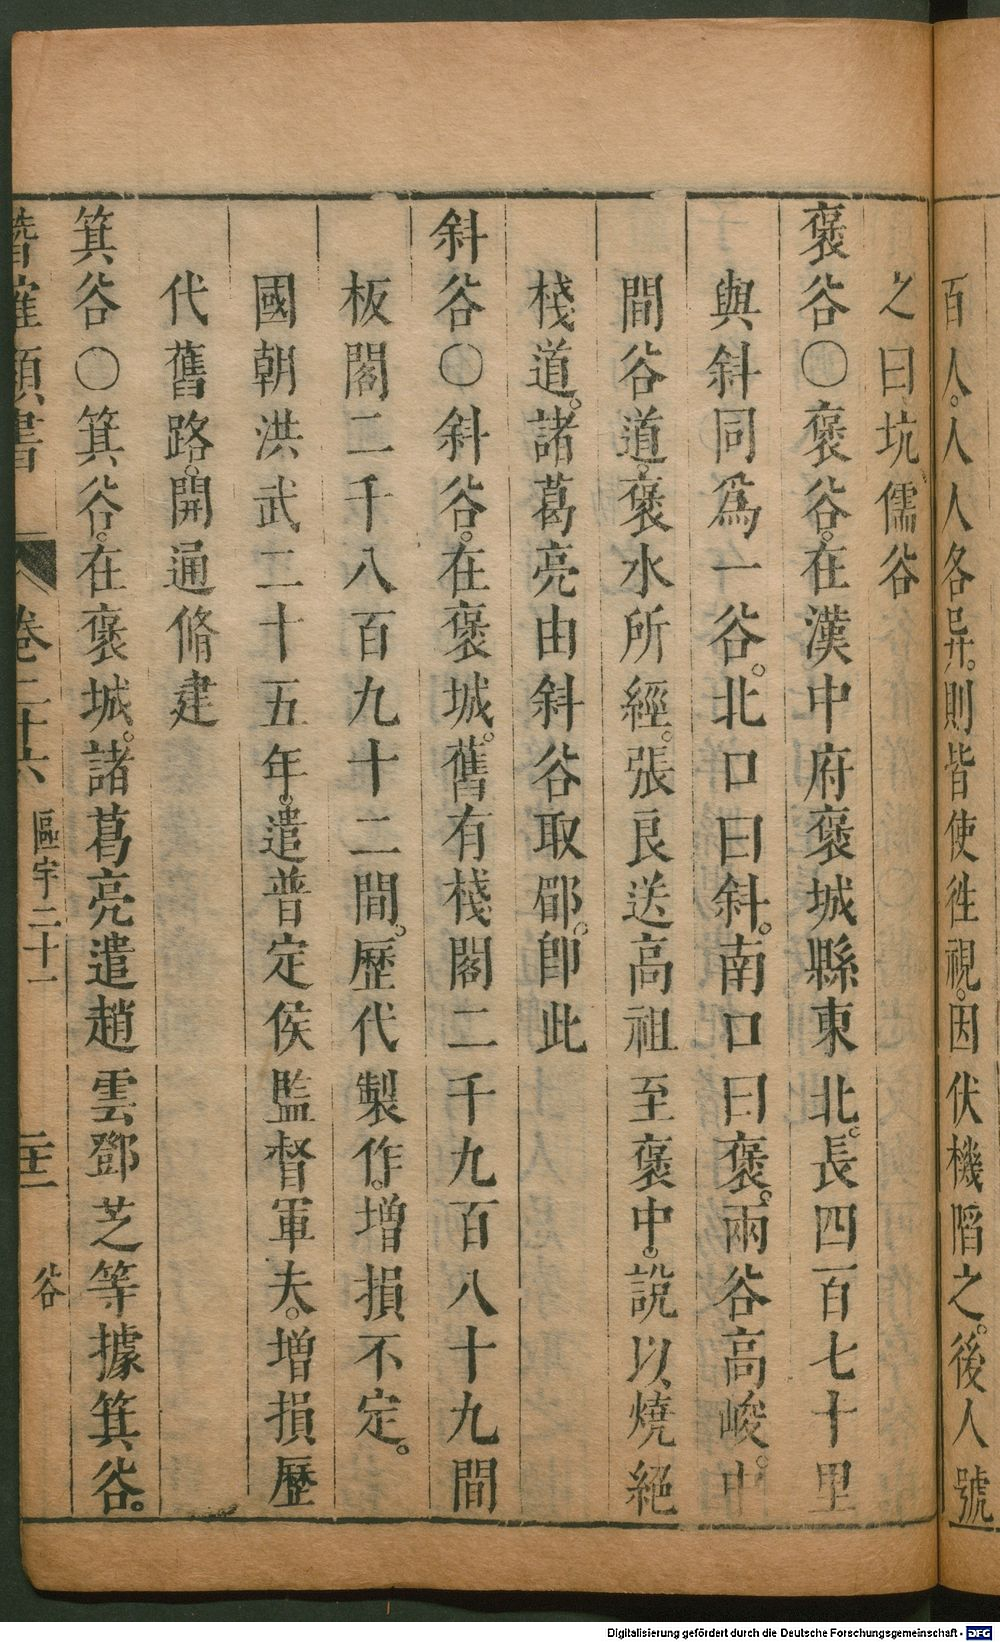 百人。人人各異。則皆使徃視。因伏機陷之。後人號
之曰坑儒谷
褒谷○褒谷。在漢中府褒城縣東北。長四百七十里
與斜同爲一谷。北口曰斜。南口曰褒。兩谷高峻。中
間谷道。褒水所經。張良送高祖至褒中。說以燒絕
棧道。諸葛亮由斜谷取郿。卽此
斜谷○斜谷。在褒城。舊有棧閣二千九百八十九間
板閣二千八百九十二間。歷代製作。增損不定。
國朝洪武二十五年。遣普定侯監督軍夫。增損歷
代舊路。開通脩建
箕谷○箕谷。在褒城。諸葛亮遣趙雲鄧芝等據箕谷。
潛確類書 卷二十六 區宇二十一 二十一 谷
Digitalisierung gefördert durch die Deutsche Forschungsgemeinschaft - DFG